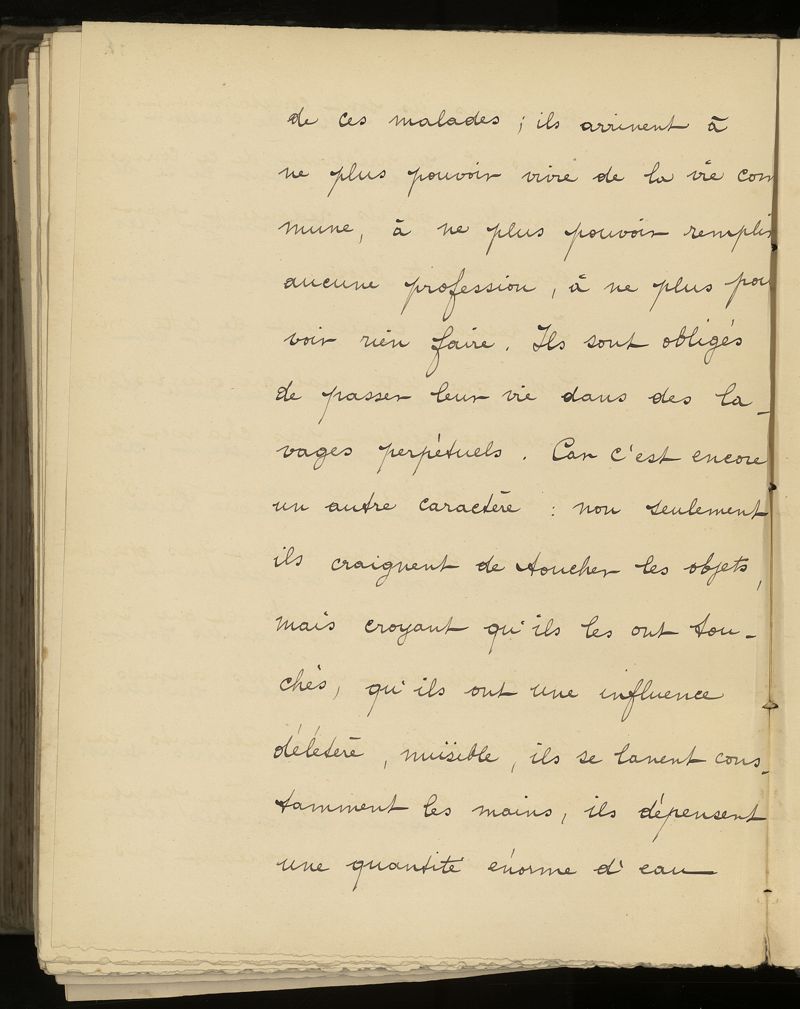 de ces malades ; ils arrivent à
ne plus pouvoir vivre de la vie com
mune, à ne plus pouvoir remplir
aucune profession, à ne plus pou
voir rien faire. Ils sont obligés
de passer leur vie dans des la-
vages perpétuels. Car c'est encore
un autre caractère : non seulement
ils craignent de toucher les objets,
mais croyant qu'ils les ont tou-
chés, qu'ils ont une influence
délétère, nuisible, ils se lavent cons-
tamment les mains, ils dépensent
une quantité énorme d'eau